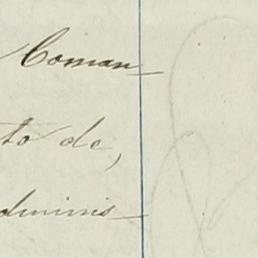 Coman-
to de,
dminis-